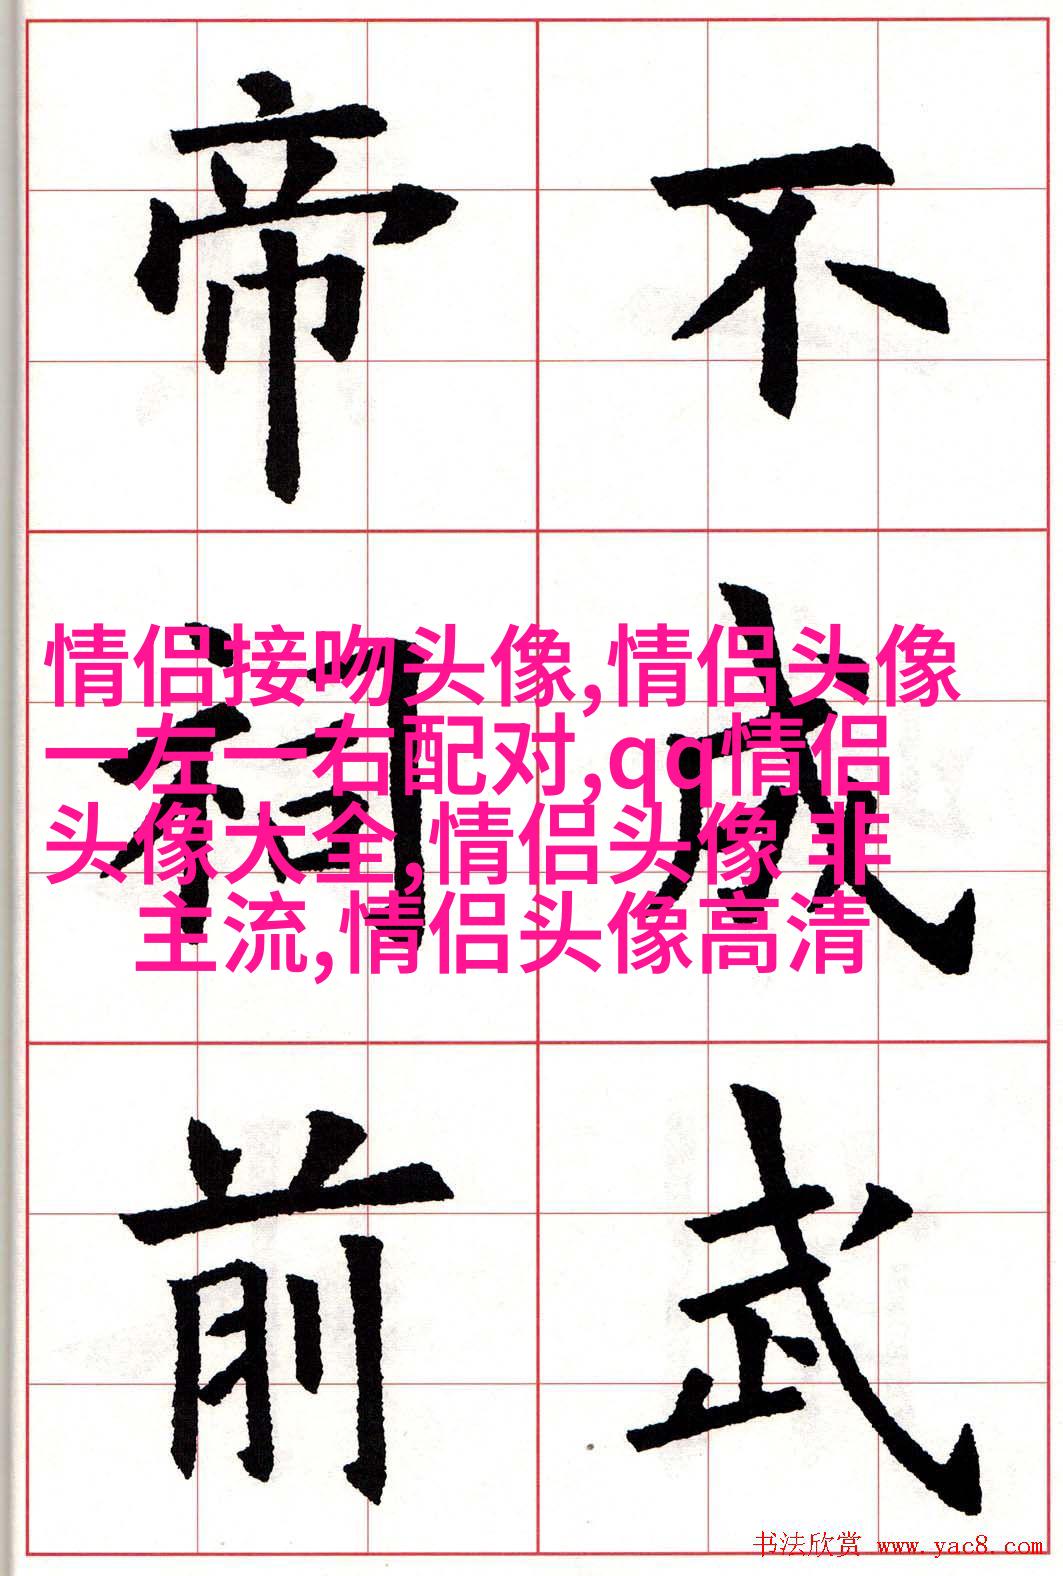 不成武
帝祠前
情侣接吻头像,情侣头像
一左一右配对,qq情侣
头像大全,情侣头像 非
主流,情侣头像高清
书法欣赏 www.yac8.com